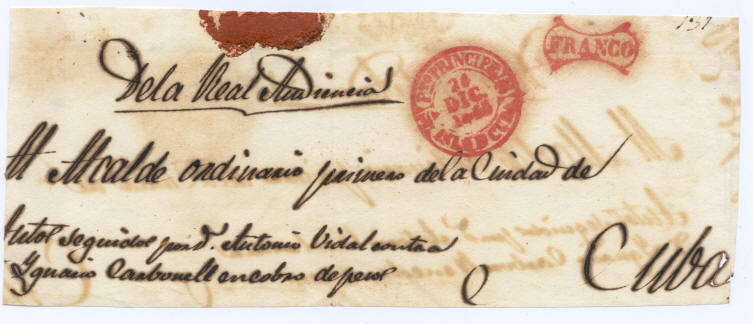 FRANCO
PTO PRINCIPE
24
DIC.
De la Real Audiencia
Al Alcalde ordinario primero de la Ciudad de
Cuba
Autos seguidos por D. Antonio Vidal contra
Ygnacio Carbonell en cobro de pesos